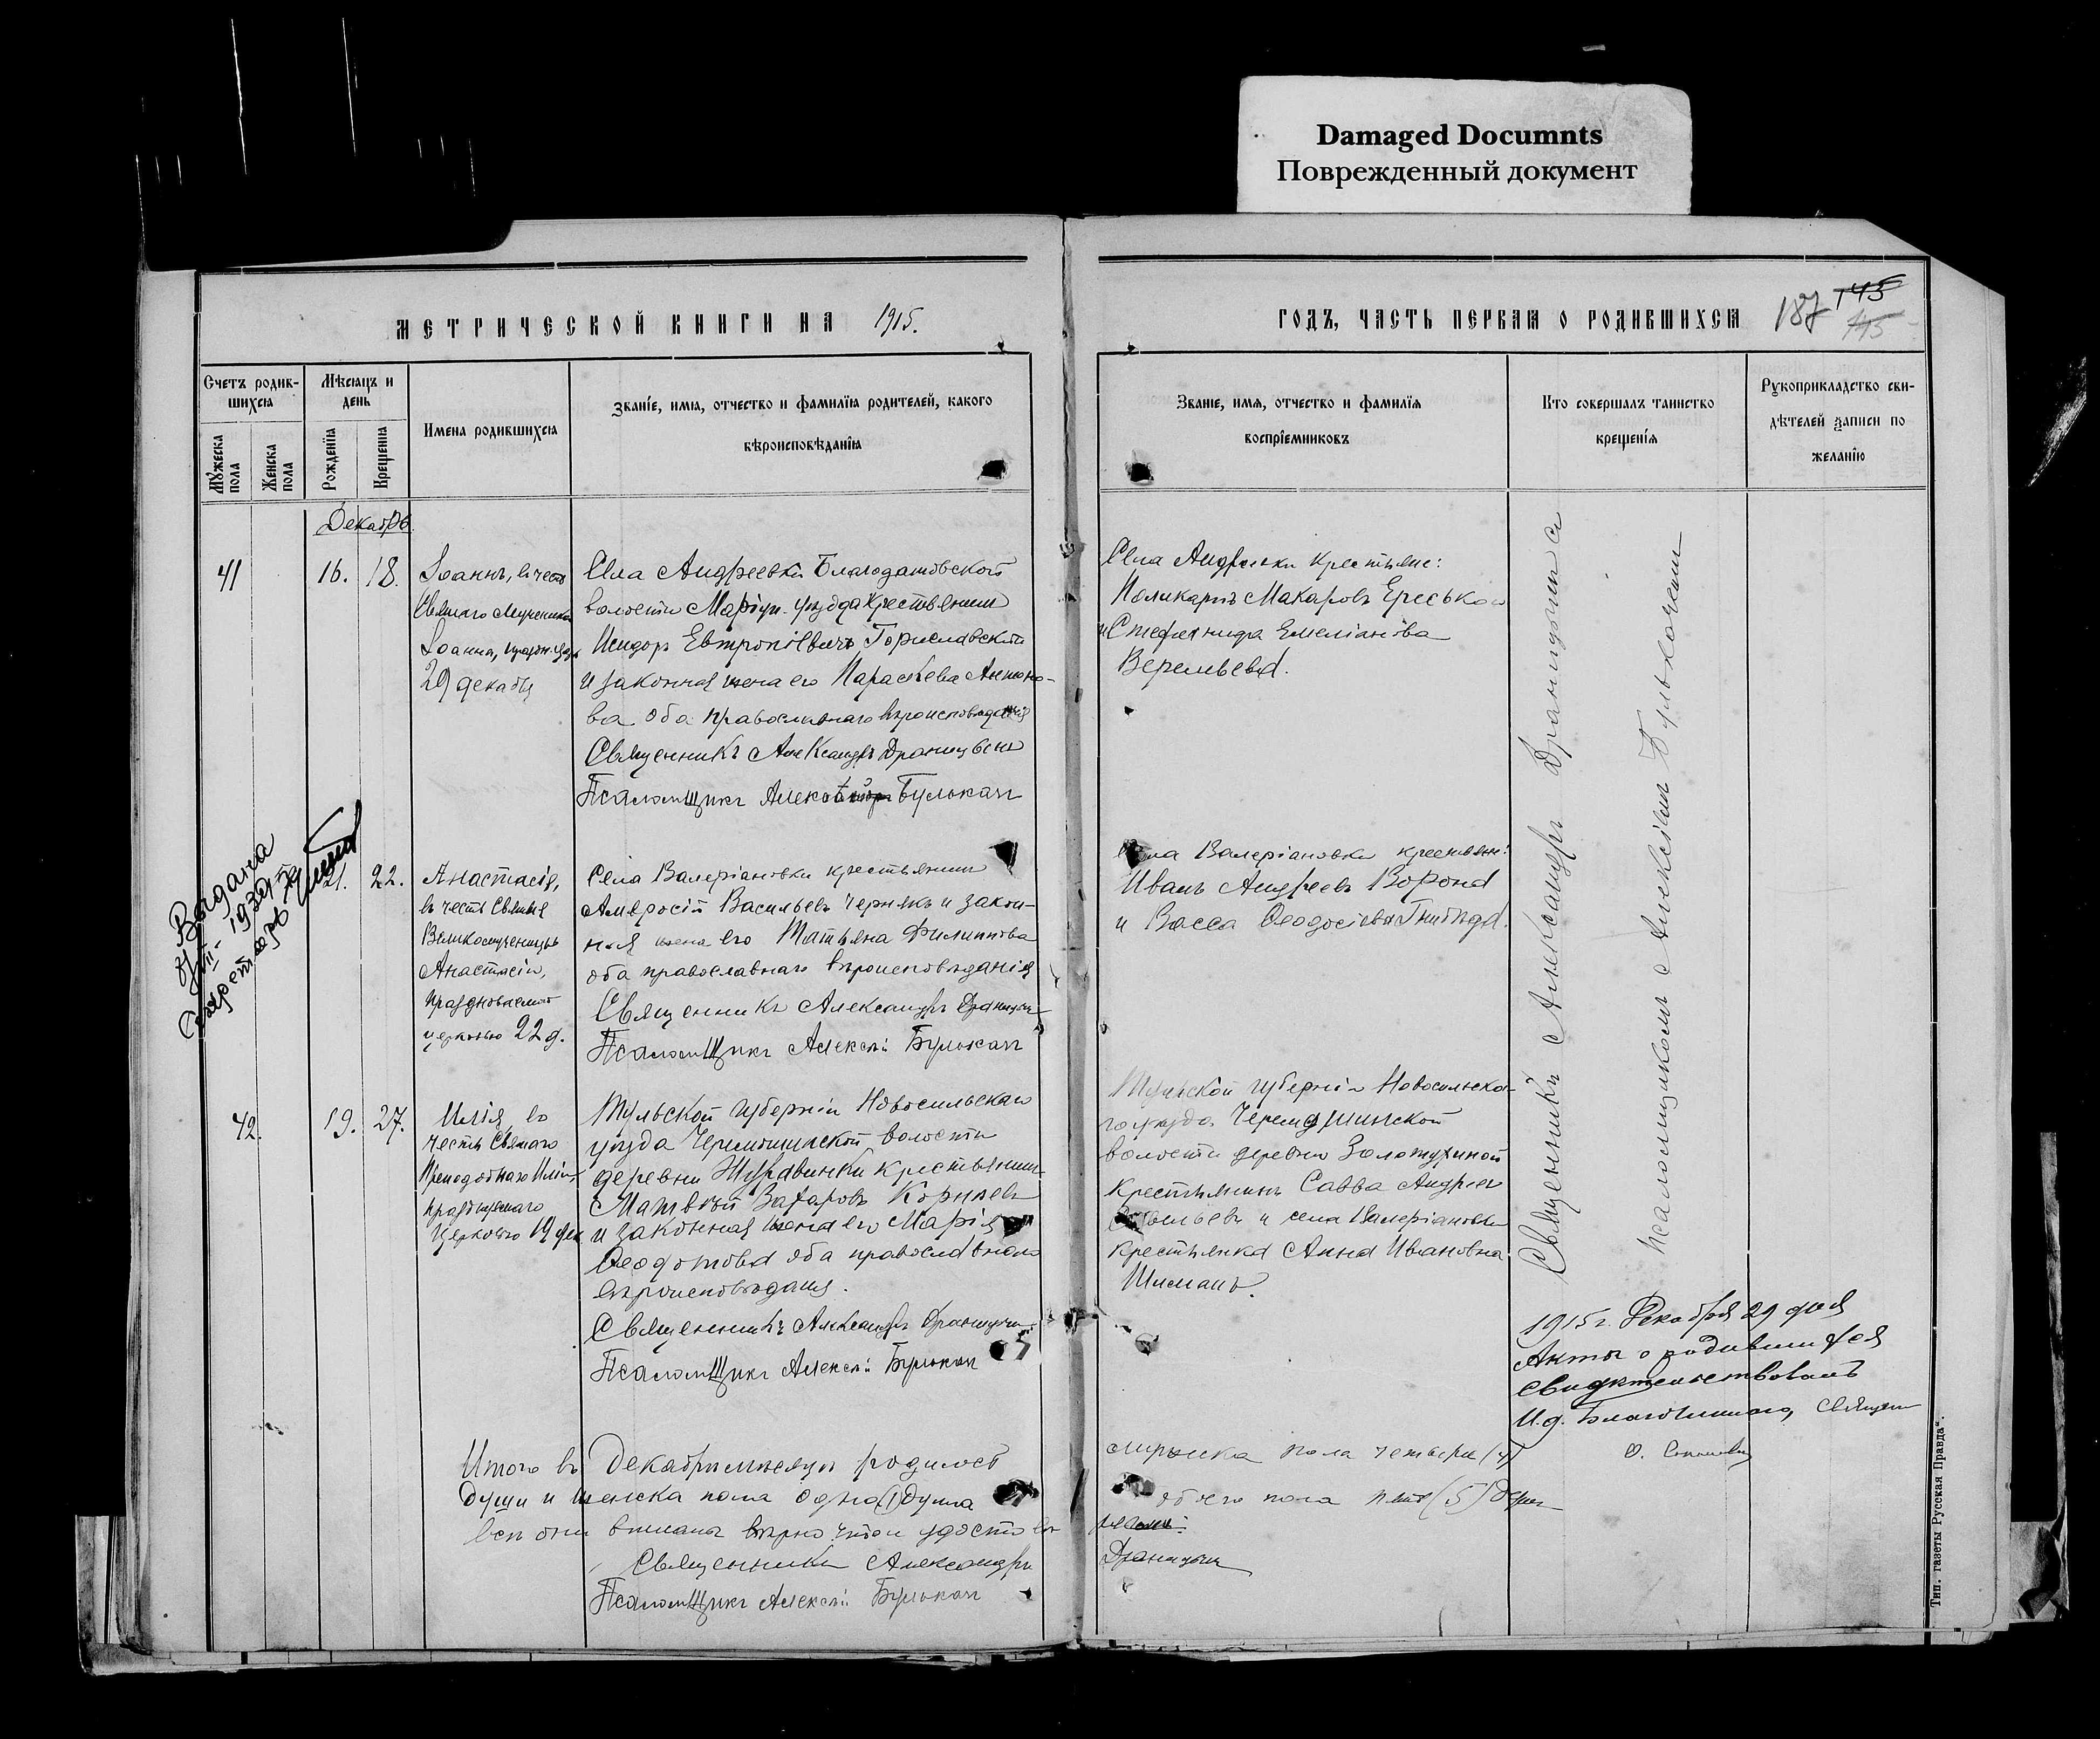 Damaged Documnts
Поврежденный документ
МЕТРИЧЕСКОЙ КНИГИ НА 1915.
Счетъ родив-
шихся
Мѣсяцъ и
день
Мужеска
пола
Женска
пола
Рожденія
Крещенія
Имена родившихся
Званіе, имя, отчество и фамилія родителей, какого
вѣроисповѣданія
Декабрь
41
16. 18.
Іоаннъ, въ честь
Святаго Мученика
Іоанна,
29 декабря
Села Андреевки Благодатовской
волости Маріуп. уѣзда крестьянин
Исидоръ Евтропіевичъ Гориславскій
и законная жена его Параскева Антоно-
ва оба православнаго вѣроисповѣданія
Священникъ Александръ Драницынъ
Псаломщикъ Алексѣй Булокач
Выдана
1930
Секретарь
21. 22.
Анастасія,
въ честь Святыя
Великомученицы
Анастасіи,
празднуемой
церковью 22 д.
Села Валеріановки крестьянинъ
Амвросій Васильевъ Чернякъ и закон-
ная жена его Татьяна Филиппова
оба православнаго вѣроисповѣданія
Священникъ Александръ Драницынъ
Псаломщикъ Алексѣй Булокач
42.
19. 27.
Илія, въ
честь Святаго
Преподобнаго Иліи,
празднуемаго
Церковью 19 дек
Тульской губерніи Новосильскаго
уѣзда Черемошинской волости
деревни Журавинки крестьянин
Матвѣй Захаровъ Корнѣевъ
и законная жена его Марія
Ѳеодотова оба православнаго
вѣроисповѣданія.
Священникъ Александръ Драницынъ
Псаломщикъ Алексѣй Булокач
Итого въ Декабрѣ мѣсяцѣ родилось
души и женска пола одна (1) душа
всѣ они вписаны вѣрно въ
Священникъ Александръ
Псаломщикъ Алексѣй Булокач
ГОДЪ, ЧАСТЬ ПЕРВАЯ О РОДИВШИХСЯ
187 145
145
Званіе, имя, отчество и фамилія
воспріемниковъ
Кто совершалъ таинство
крещенія
Рукоприкладство сви-
дѣтелей записи по
желанію
Села Андреевки крестьяне:
Поликарпъ Макаровъ Ереська
и Стефанида Емеліанова
Села Валеріановки крестьяне:
Иванъ Андреевъ Ворона
и Васса Ѳеодосіева Гнибѣда.
Тульской губерніи Новосильска-
го уѣзда Черемошинской
волости деревни Золотухиной
крестьянинъ Савва Андреев
Васильевъ и села Валеріановки
крестьянка Анна Ивановна
Шиманъ.
мужска пола четыре (4)
обоего пола пять (5) душ
Драницынъ
Священникъ Александръ Драницынъ съ
псаломщикомъ Алексѣемъ Булокачемъ
1915 г. Декабря 29 дня
Акты о родившихся
свидѣтельствовалъ
И.д. Благочиннаго, Священ
Тип. газеты Русская Правда“.